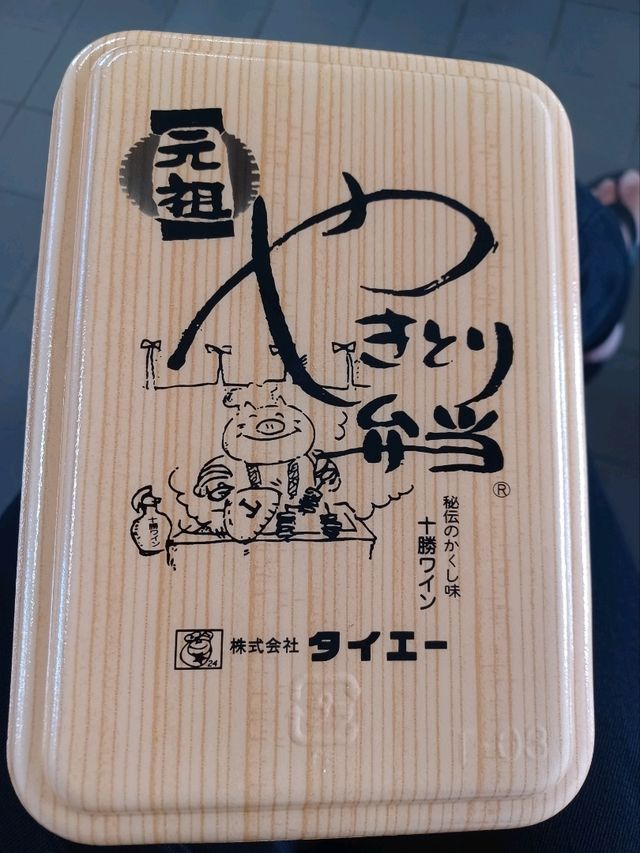 元祖
やきとり
弁当
®
秘伝のかくし味
十勝ワイン
十勝ワイン
24
株式会社 タイエー